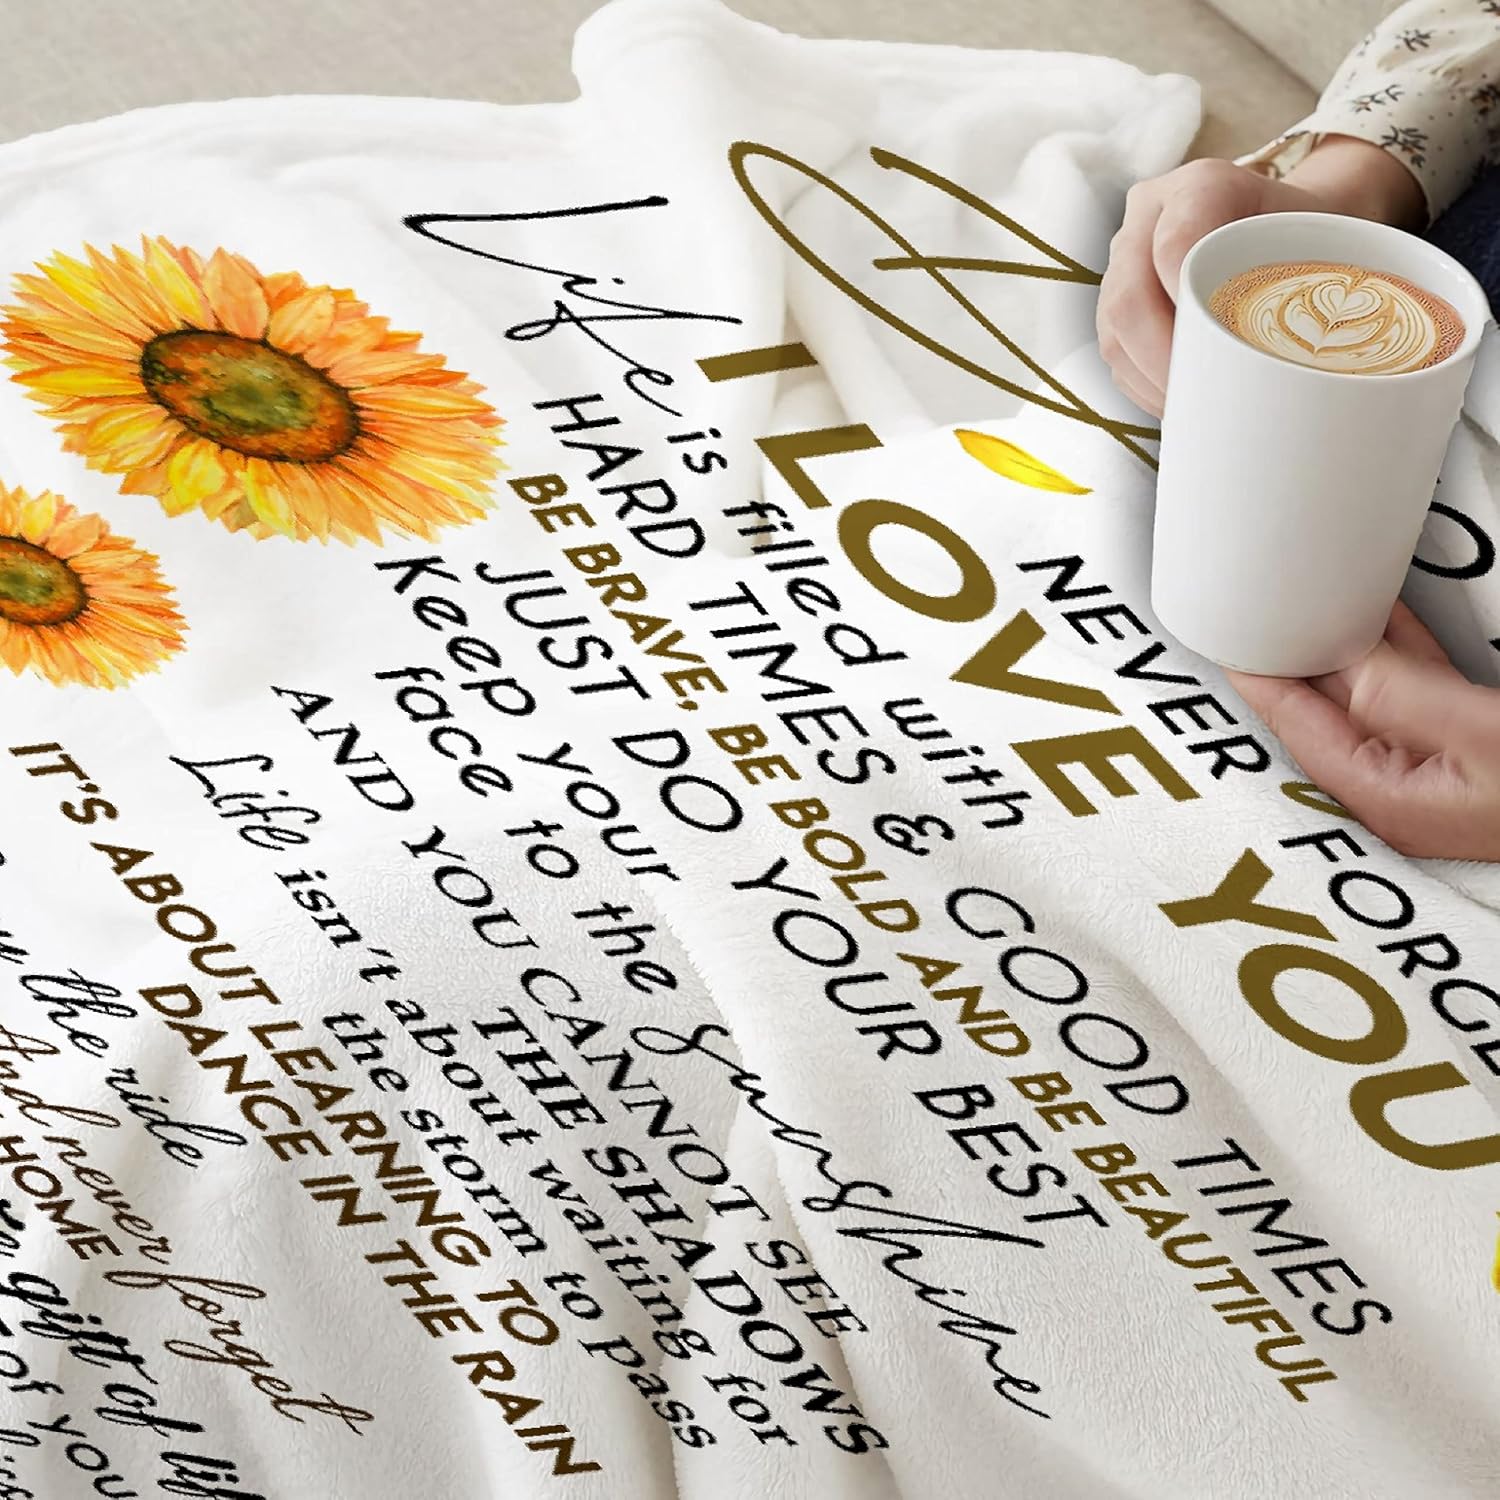 NEVER FORGE
I LOVE YOU
Life is filled with
HARD TIMES & GOOD TIMES
BE BRAVE, BE BOLD AND BE BEAUTIFUL
JUST DO YOUR BEST
Keep your
face to the Sunshine
AND YOU CANNOT SEE
THE SHADOWS
Life isn't about waiting for
the storm to pass
IT'S ABOUT LEARNING TO
DANCE IN THE RAIN
the ride
And never forget
HOME
gift of lif
OF YOU